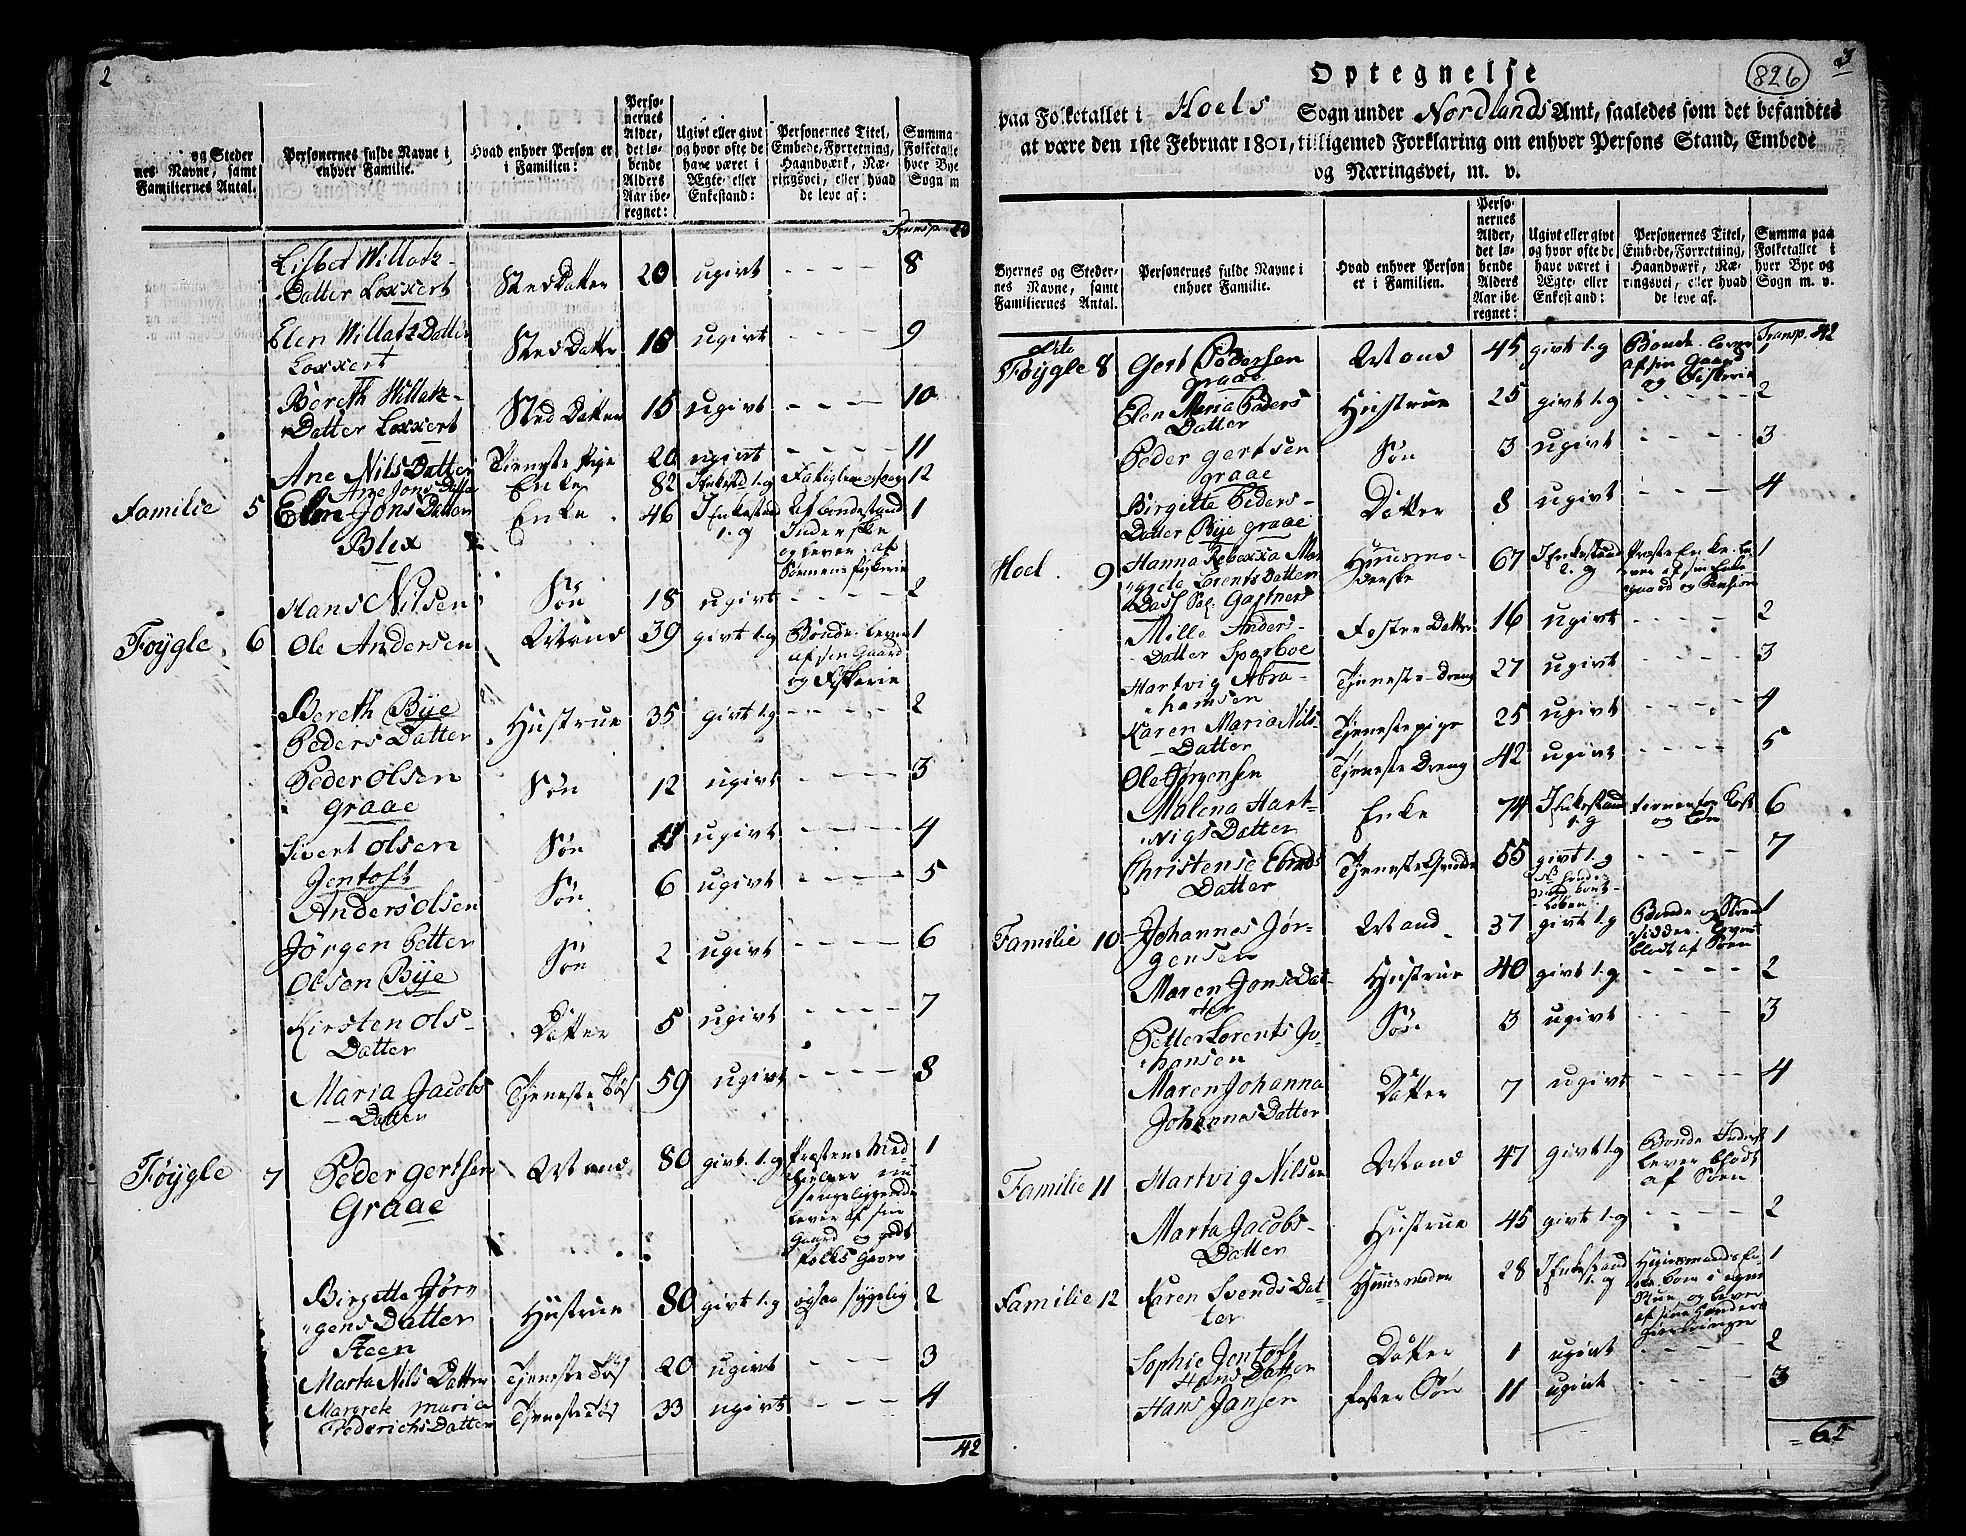 2
og Steder
nes Navne, samt
Familiernes Antal.
Personernes fulde Navne i
enhver Familie.
Hvad enhver Person er
i Familien:
Perso-
nernes
Alder,
det lø-
bende
Alders
Aar ibe-
regnet:
Ugivt eller givt
og hvor ofte de
have været i
Ægte- eller
Enkestand:
Personernes Titel,
Embede, Forretning,
Haandværk, Næ-
ringsvei, eller hvad
de leve af:
Summa
Folketalle
hver Bye
Sogn m
Transp
Lisbet Willatz-
Datter Loxxert StedDatter 20 ugivt - - - - 8
Elen WillatzDatter
Loxxert StedDatter 18 ugivt - - - - 9
Bereth Willatz-
Datter Loxxert Sted Datter 15 ugivt - - - - 10
Ane NilsDatter Tjeneste Pige 20 ugivt - - - - 11
Ane JonsDatter Enke 82 Enkestd 1. g 12
Familie 5 Elen JonsDatter Enke 46 I Enkestand 1. g Af bondestand 1
Blix
og lever af
Sønnens fiskerie
Hans Nilsen Søn 18 ugivt - - - - 2
Føygle 6 Ole Andersen Mand 39 givt 1. g Bonde lever 1
af sin Gaard
og Fiskerie
Bereth Bye
Peders Datter Hustrue 35 givt 1. g - - - - 2
Peder Olsen
Graae Søn 12 ugivt - - - - 3
Sivert Olsen
Jentoft Søn 11 ugivt - - - - 4
Anders Olsen Søn 6 ugivt - - - - 5
Jørgen Petter
Olsen Bye Søn 2 ugivt - - - - 6
Kirsten Ols-
Datter Datter 5 ugivt - - - - 7
Maria Jacobs
-Datter Tjeneste Tøs 59 ugivt - - - - 8
Føygle 7 Peder Gertsen
Graae Mand 80 givt 1. g Præstens Med 1
hielper nu
sengeliggende
lever af sin
Gaard og godt
folks Gaver
Birgette Jør
gens Datter
Steen Hustrue 80 givt 1. g ogsaa sygelig 2
Marta Nils Datter Tjeneste Tøs 20 ugivt - - - 3
Margrete Maria
FrederichsDatter Tjeneste Tøs 33 ugivt - - - - 4
42
826
3
Optegnelse
paa Folketallet i Hoels Sogn under Nordlands Amt, saaledes som det befandtes
at være den 1ste Februar 1801, tilligemed Forklaring om enhver Persons Stand, Embede
og Næringsvei, m. v.
Byernes og Steder-
nes Navne, samt
Familiernes Antal.
Personernes fulde Navne i
enhver Familie.
Hvad enhver Person
er i Familien.
Perso-
nernes
Alder,
det lø-
bende
Alders
Aar ibe-
regnet:
Ugivt eller givt
og hvor ofte de
have været i
Ægte- eller
Enkestand:
Personernes Titel,
Embede, Forretning,
Haandværk, Næ-
ringsvei, eller hvad
de leve af.
Summa paa
Folketallet i
hver Bye og
Sogn m. v.
Transp. 42
Føygle 8 Gert Pedersen
Graae Mand 45 givt 1. g Bonde lever 1
af sin Gaard
og Fiskerie
Elen Maria Peders
Datter Hustrue 25 givt 1. g - - - - 2
Peder Gertsen
Graae Søn 3 ugivt - - - - 3
Birgitte Peders-
Datter Bye Graae Datter 8 ugivt - - - - 4
Hoel 9 Hanna Rebexxa Mar
grete LorentsDatter
Dass Sal. Gastners Huusmo-
derske 67 I Enkestand 2. g Præste Enke le- 1
ver af sin Enke
gaard og Pension
Mille Anders-
Datter Sparboe Foster Datter 16 ugivt - - - - 2
Hartvig Abra-
hamsen Tjeneste-Dreng 27 ugivt - - - - 3
Karen Maria Nils-
-Datter Tjenestepige 25 ugivt - - - - 4
Ole Jørgensen Tjeneste Dreng 42 ugivt - - - - 5
Malena Hart-
vigs Datter Enke 74 I Enkestand 1. g tiener for Kost 6
og Løn
Christense
Datter 55 givt 1. g - - - - 7
Familie 10 Johannes Jør-
gensen Mand 37 givt 1. g Bonde og Strand 1
sidder. Lever
blodt af Søen
Maren JonsDat-
ter Hustrue 40 givt 1. g - - - - 2
Petter Lorents Jo-
hansen Søn 3 ugivt - - - - 3
Maren Johanna
JohannesDatter Datter 7 ugivt - - - - 4
Familie 11 Hartvig Nilsen Mand 47 givt 1. g Bonde Inderst 1
lever blodt
af Søen
Marta Jacobs-
Datter Hustrue 45 givt 1. g - - - - 2
Familie 12 Karen SvendsDat-
ter Huusmoder 28 I Enkestand 1. g Huusmands En- 1
ke boer i egen
Stue og lever
af sine Hænders
Giertninger
Sophie Jentoft
HansDatter Datter 1 ugivt - - - - 2
Hans Jansen Foster Søn 11 ugivt - - - - 3
62